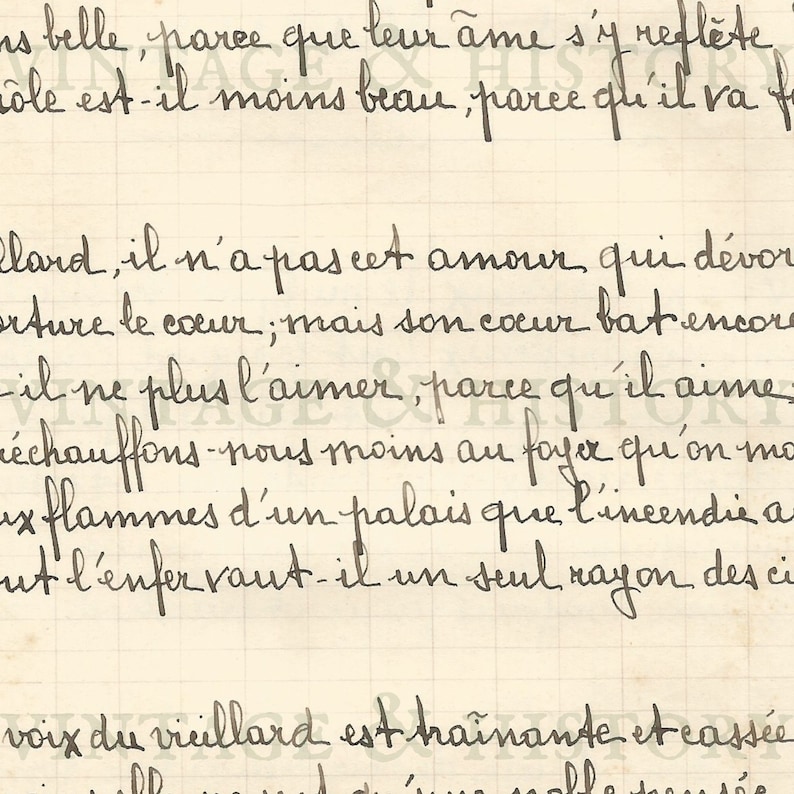 ns belle, parce que leur âme s'y reflète
VINTAGE & HISTORY
ôle est-il moins beau, parce qu'il va f
llard, il n'a pas cet amour qui dévor
orture le cœur; mais son cœur bat encore
-il ne plus l'aimer, parce qu'il aime
VINTAGE & HISTORY
réchauffons-nous moins au foyer qu'on mo
ux flammes d'un palais que l'incendie a
out l'enfer vaut-il un seul rayon des ci
VINTAGE & HISTORY
voix du vieillard est traînante et cassée
qu'une noble pensée